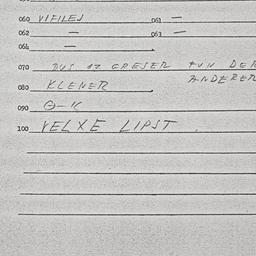 060 VIFILEJ 061 —
062 — 063 —
064 —
070 DUS IZ GRESER FUN DER
ANDERER
080 KLENER
090 Θ-K
100 VELXE LIPST